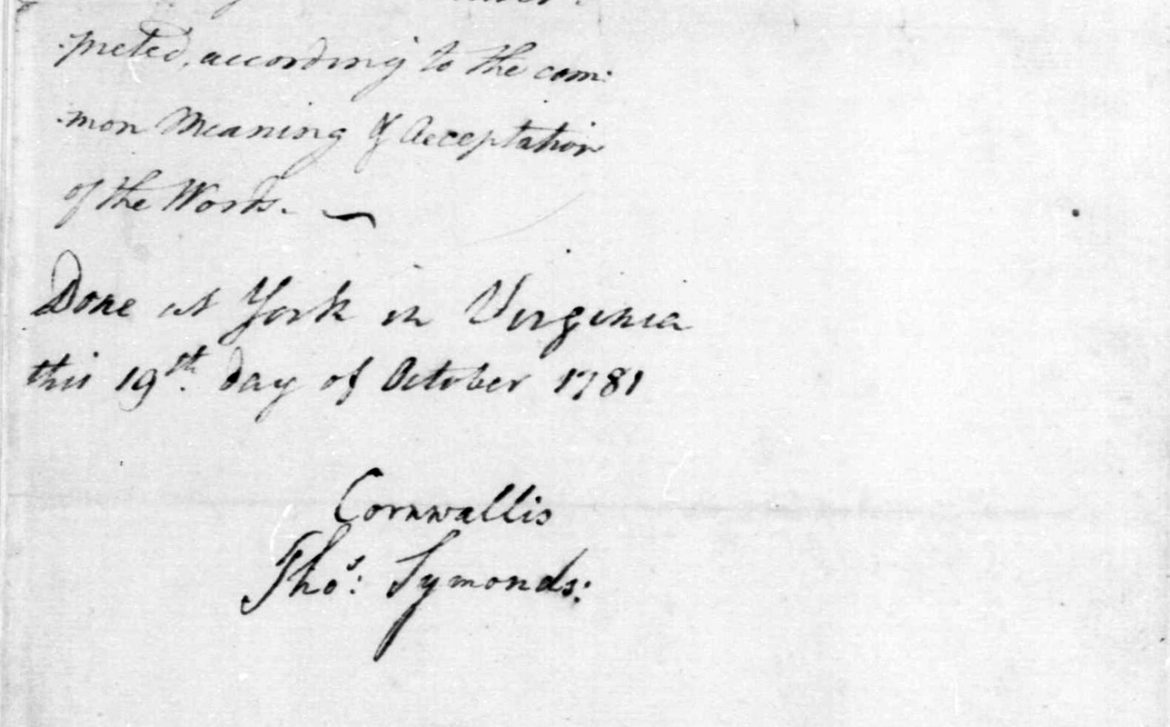 ·preted, according to the com:
·mon Meaning & Acceptation
of the Words.
Done at York in Virginia
this 19th. day of October 1781
Cornwallis
Thos: Symonds: